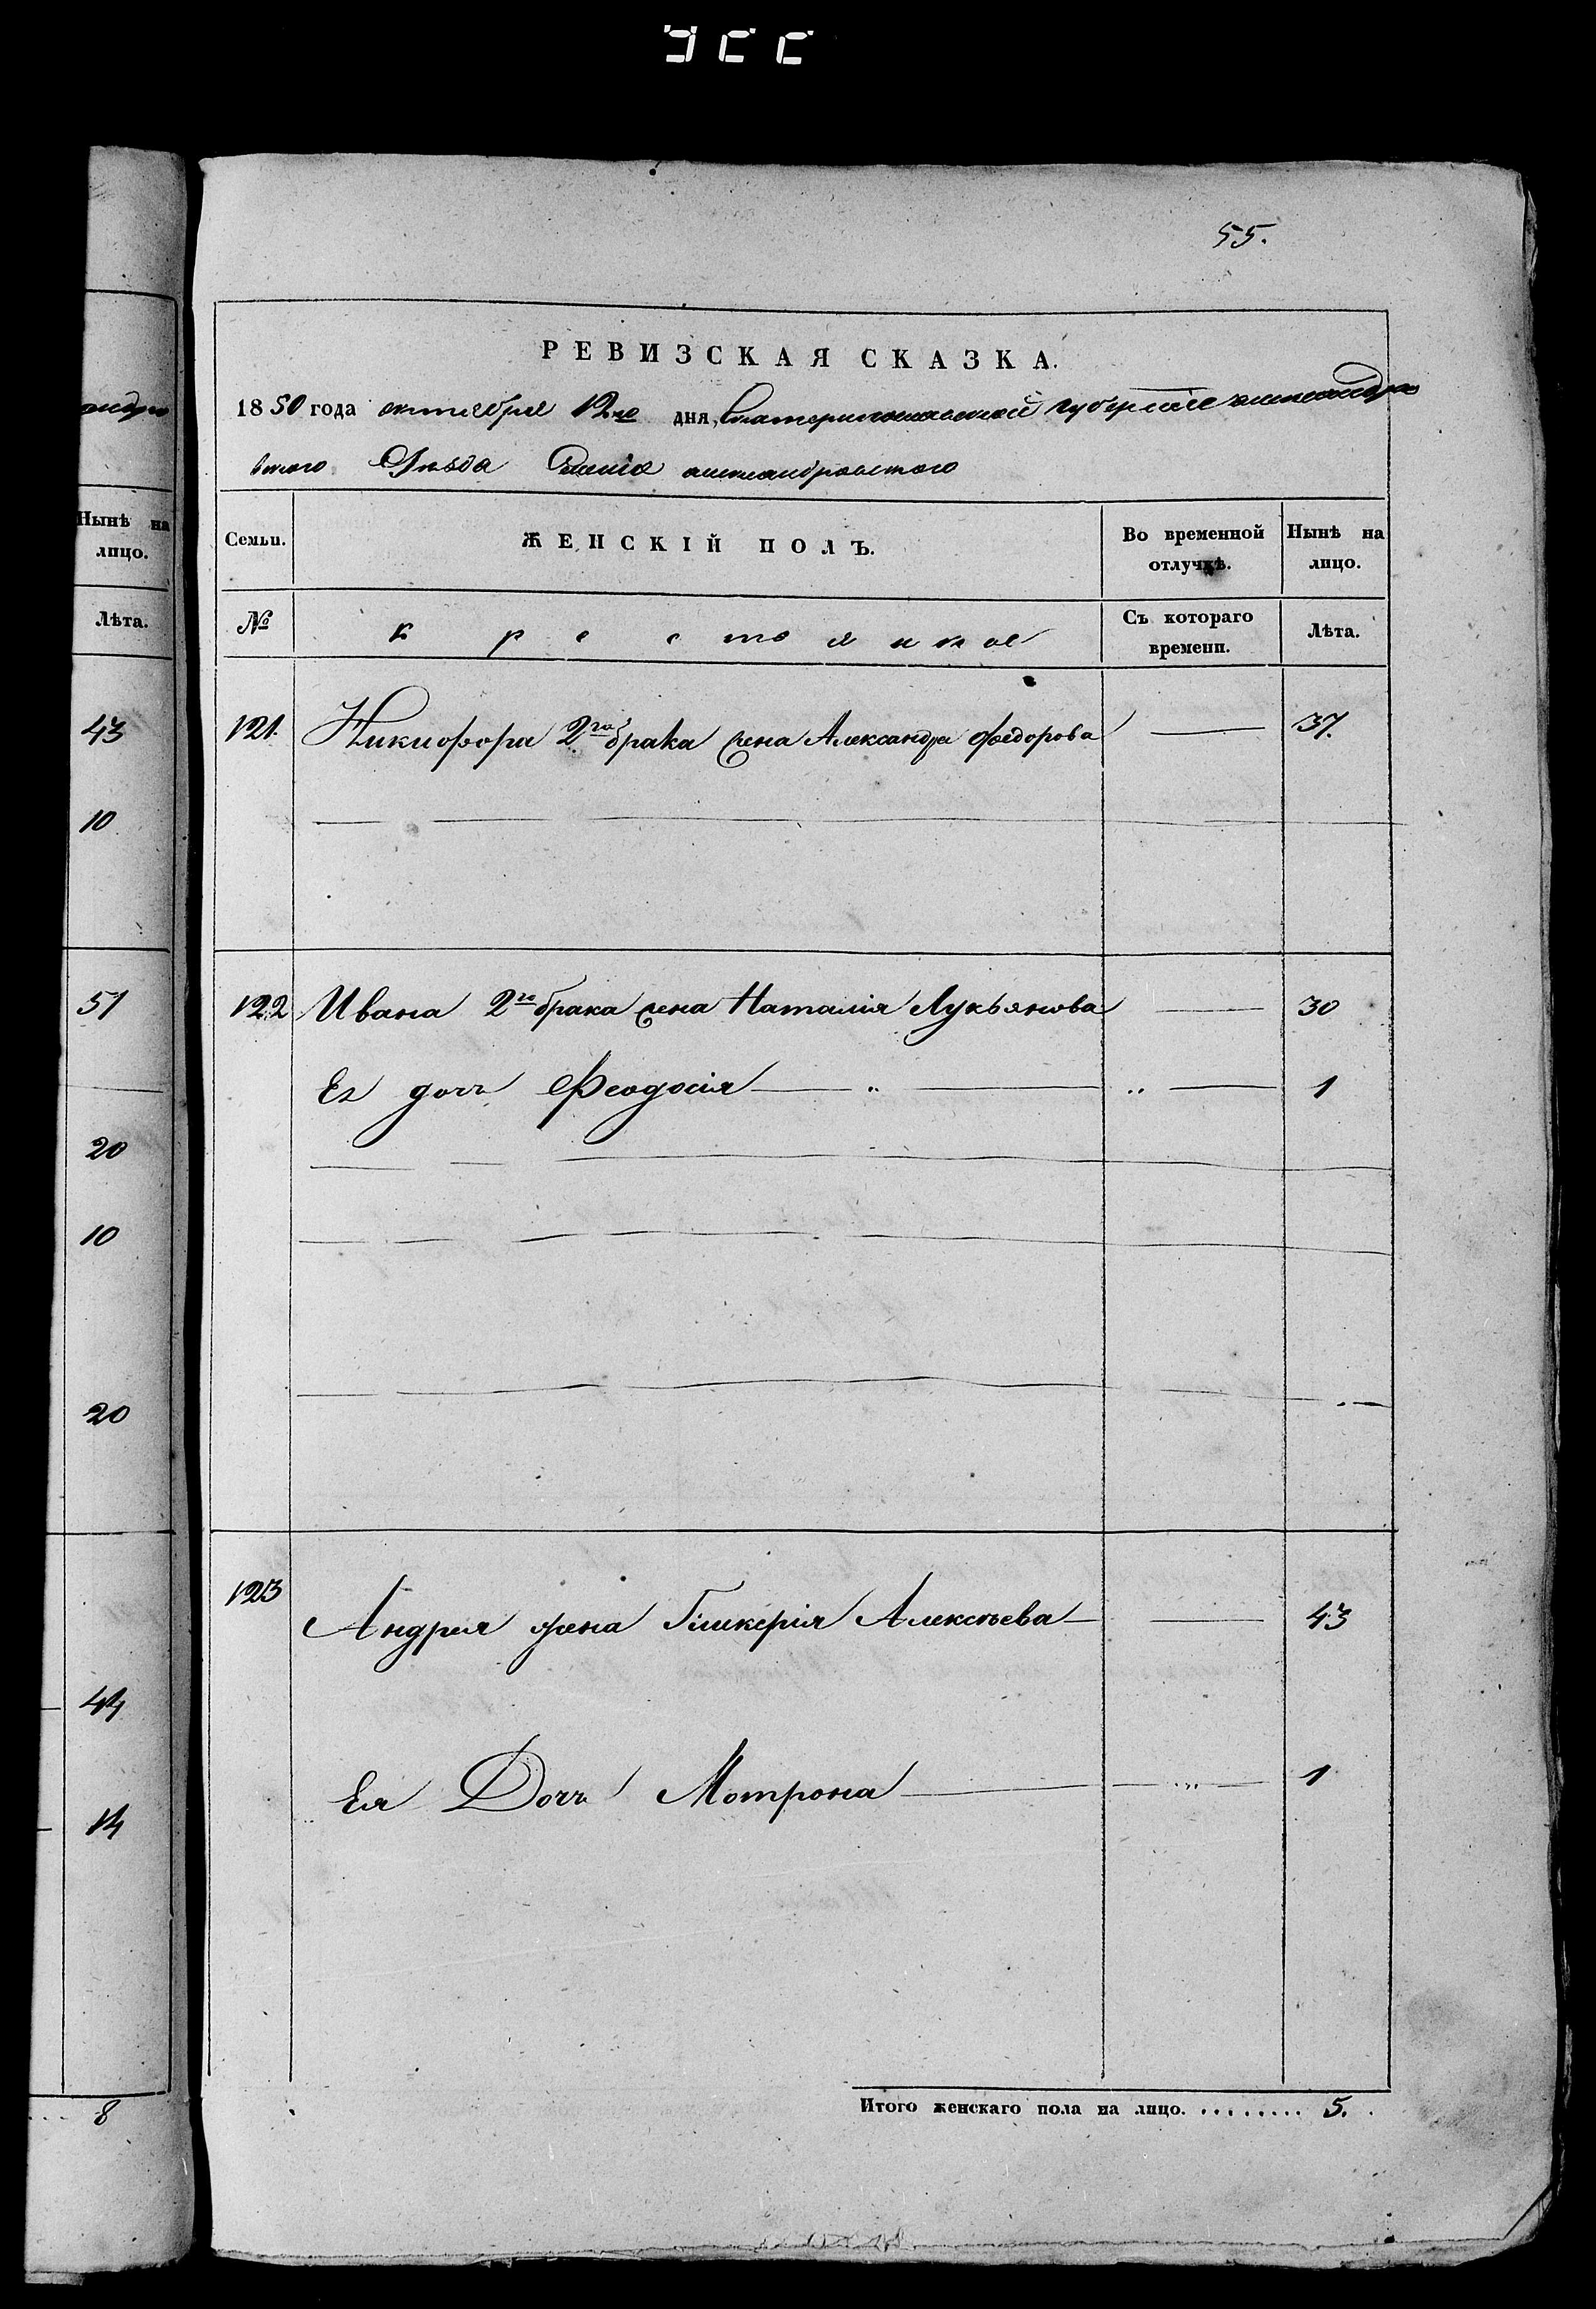 55.
РЕВИЗСКАЯ СКАЗКА.
1850 года октября 12го дня, Екатеринославской губернiи александро
вского Уезда Селенiя александровского
Семьи.
ЖЕНСКІЙ ПОЛЪ.
Во временной отлучкѣ.
Нынѣ на лицо.
№
крестянкѣ
Съ котораго времени.
Лѣта.
121. Никифора 2го брака жена Александра Федорова — 37.
122 Ивана 2го брака жена Наталія Лукьянова — 30
Ея дочь Феодосія — „ — „ — 1
123 Андрея жена Гликерія Алексѣева — 43
Ея Дочь Мотрона — 1
Итого женскаго пола на лицо. ........ 5.
Нынѣ на
лицо.
Лѣта.
43
10
51
20
10
20
44
14
8